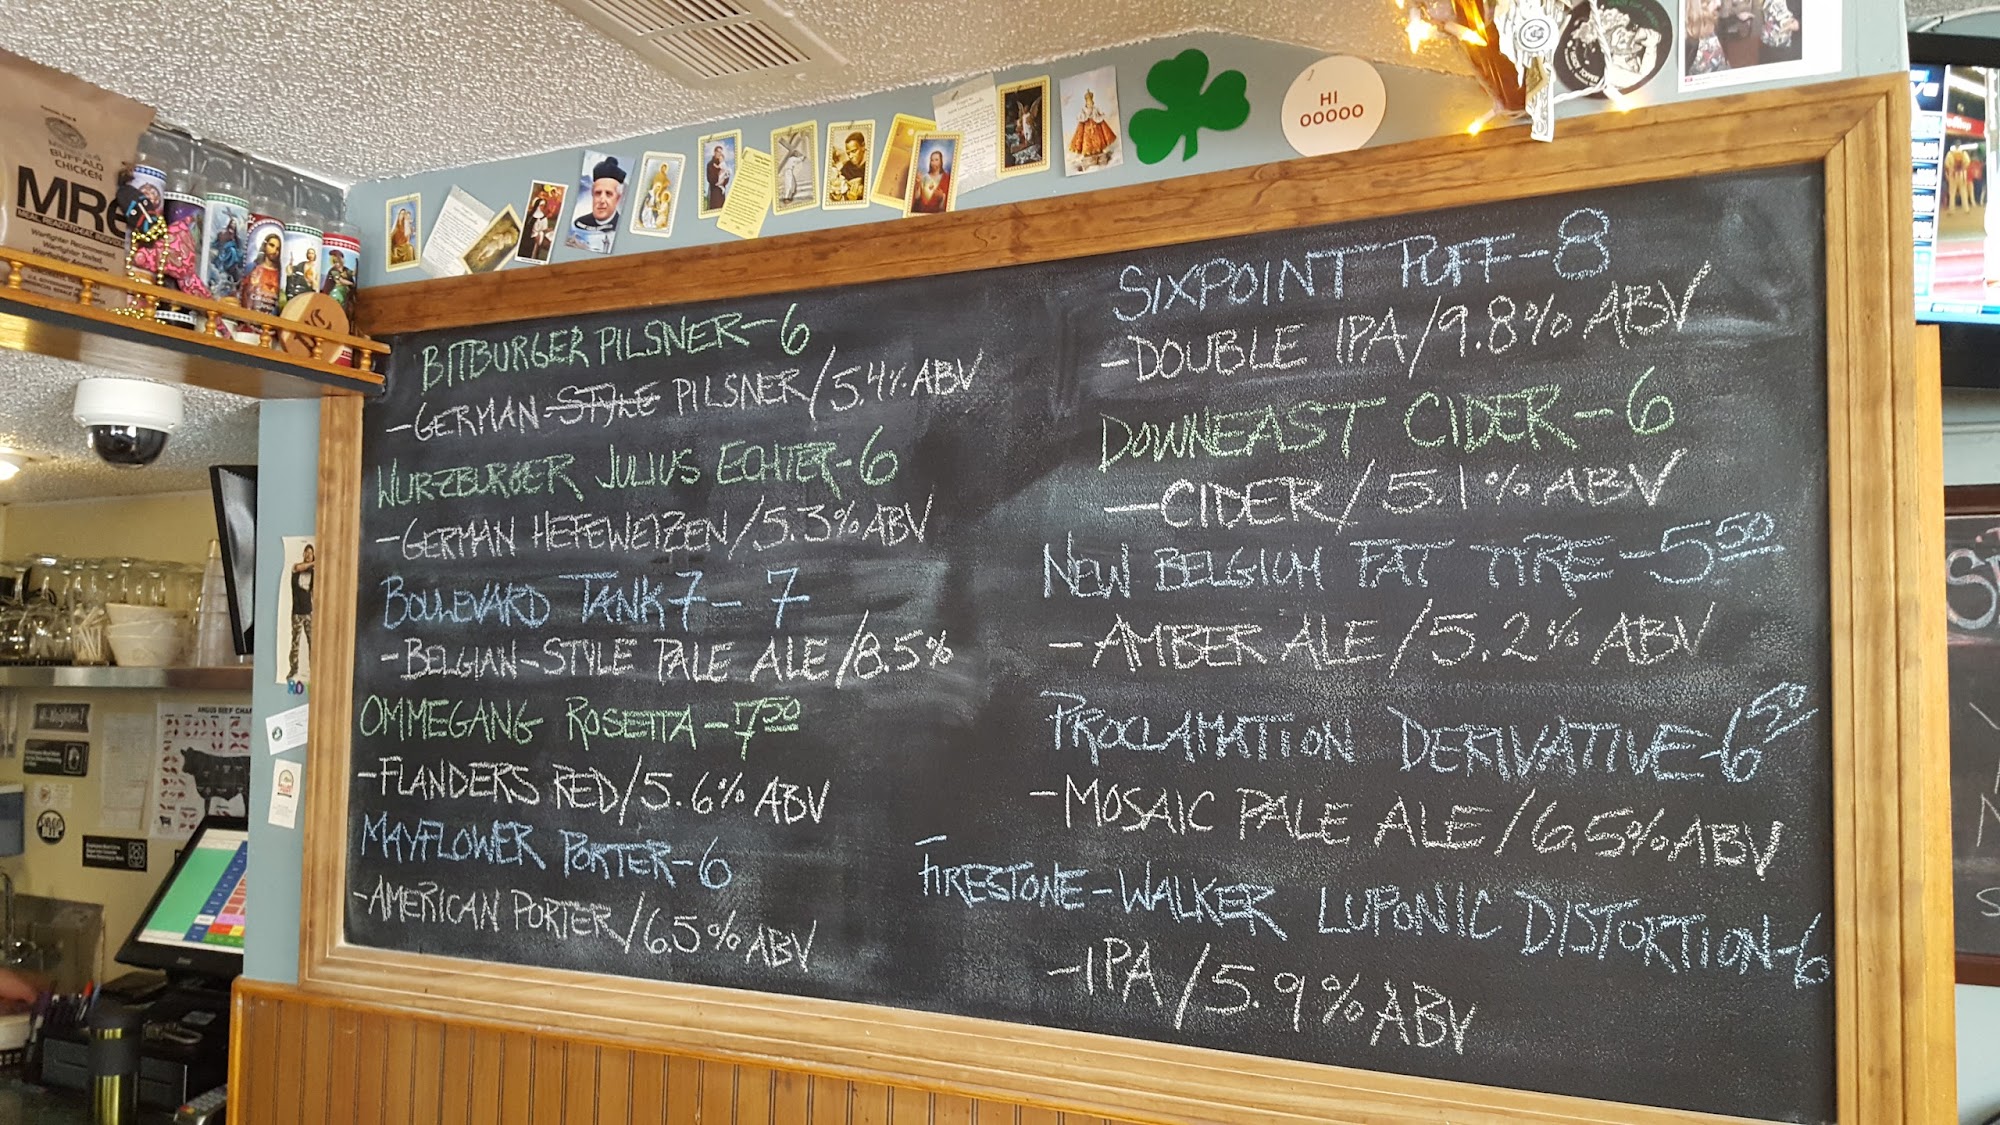 BUFFALO
CHICKEN
MRE
HI
OOOOO
BITBURGER PILSNER-6
-GERMAN-STYLE PILSNER/5.4% ABV
WURZBURGER JULIUS ECHTER-6
-GERMAN HEFEWEIZEN/5.3% ABV
BOULEVARD TANK 7-7
-BELGIAN-STYLE PALE ALE/8.5%
OMMEGANG ROSETTA-7 50
-FLANDERS RED/5.6% ABV
MAYFLOWER PORTER-6
-AMERICAN PORTER/6.5% ABV
SIXPOINT PUFF-8
-DOUBLE IPA/9.8% ABV
DOWNEAST CIDER-6
-CIDER/5.1% ABV
NEW BELGIUM FAT TYRE-5 50
-AMBER ALE/5.2% ABV
PROCLAMATION DERIVATIVE-6 50
-MOSAIC PALE ALE/6.5% ABV
FIRESTONE-WALKER LUPONIC DISTORTION-6
-IPA/5.9% ABV